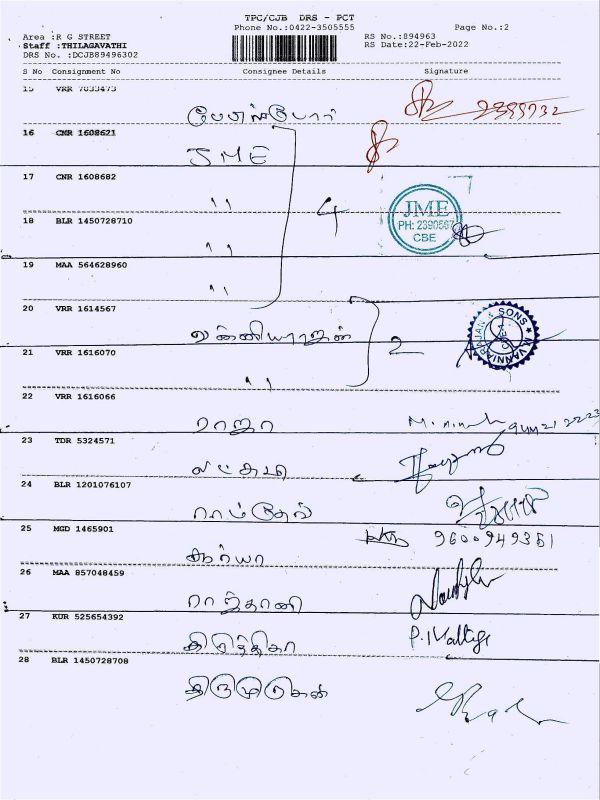 TPC/CJB DRS - PCT
Phone No.:0422-3505555 Page No.:2
Area :R G STREET RS No.:894963
Staff :THILAGAVATHI RS Date:22-Feb-2022
DRS No. :DCJB89496302
S No Consignment No Consignee Details Signature
15 VRR 7033473
16 CMR 1608621
JME
17 CNR 1608682
" 4
JME
PH: 2390567
CBE
18 BLR 1450728710
"
19 MAA 564628960
"
20 VRR 1614567
வன்னியராஜன் 2
M. VANNIARAJAN & SONS
21 VRR 1616070
"
22 VRR 1616066
ராஜா
23 TDR 5324571
லட்சுமி
24 BLR 1201076107
ராம்தேவ்
25 MGD 1465901
சூர்யா 9600949351
26 MAA 857048459
ராஜ்தானி
27 KUR 525654392
கிருத்திகா
28 BLR 1450728708
திருமுருகன்